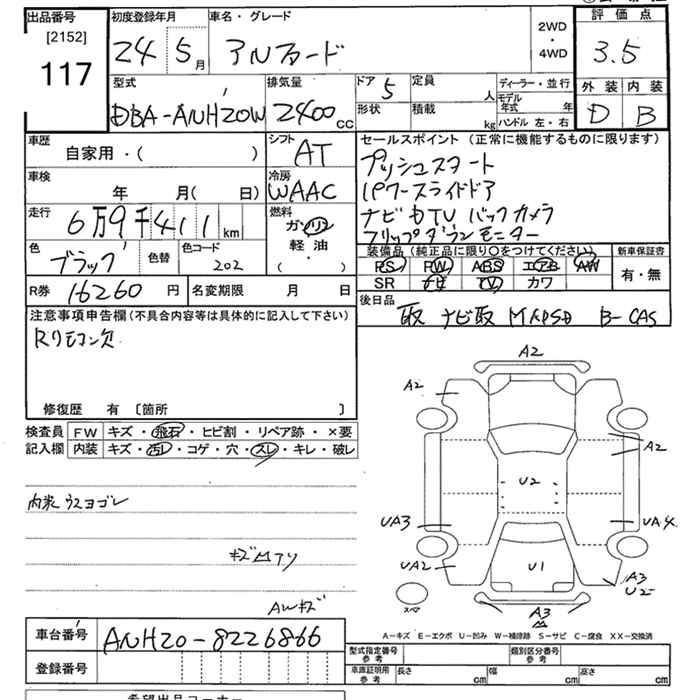 出品番号 初度登録年月 車名・グレード 2WD・4WD 評価点
[2152]
117 24 5月 アルファード 3.5
型式 排気量 ドア 定員 ディーラー・並行 外装 内装
DBA-ANH20W 2400cc 5 人 モデル年式 年 D B
形状 積載 kg ハンドル 左・右
車歴 シフト セールスポイント (正常に機能するものに限ります)
自家用・( ) AT プッシュスタート
車検 冷房 パワースライドドア
年 月( 日) WAAC ナビ TV バックカメラ
走行 燃料 フリップダウンモニター
6万9千411km ガソリン 軽油 ・( )
装備品(純正品に限り○をつけてください) 新車保証書
色 色替 色コード PS PW ABS エアB AW 有・無
ブラック 202 SR ナビ TV カワ
R券 16260円 名変期限 月 日 後日品
取 ナビ取
注意事項申告欄(不具合内容等は具体的に記入して下さい)
Rリモコン欠
修復歴 有 〔箇所 〕
検査員 FW キズ・飛石・ヒビ割・リペア跡・×要
記入欄 内装 キズ・汚レ・コゲ・穴・スレ・キレ・破レ
内装ウスヨゴレ
AWキズ
A2
A2
A2
U2
UA3 UA4
UA2 U1 A3
U2
スペア A3
A-キズ E-エクボ U-凹み W-補修跡 S-サビ C-腐食 XX-交換済
車台番号 ANH20-8226866
型式指定番号 参考 類別区分番号 参考
登録番号 車庫証明用 参考 長さ cm 幅 cm 高さ cm
希望出品コーナー